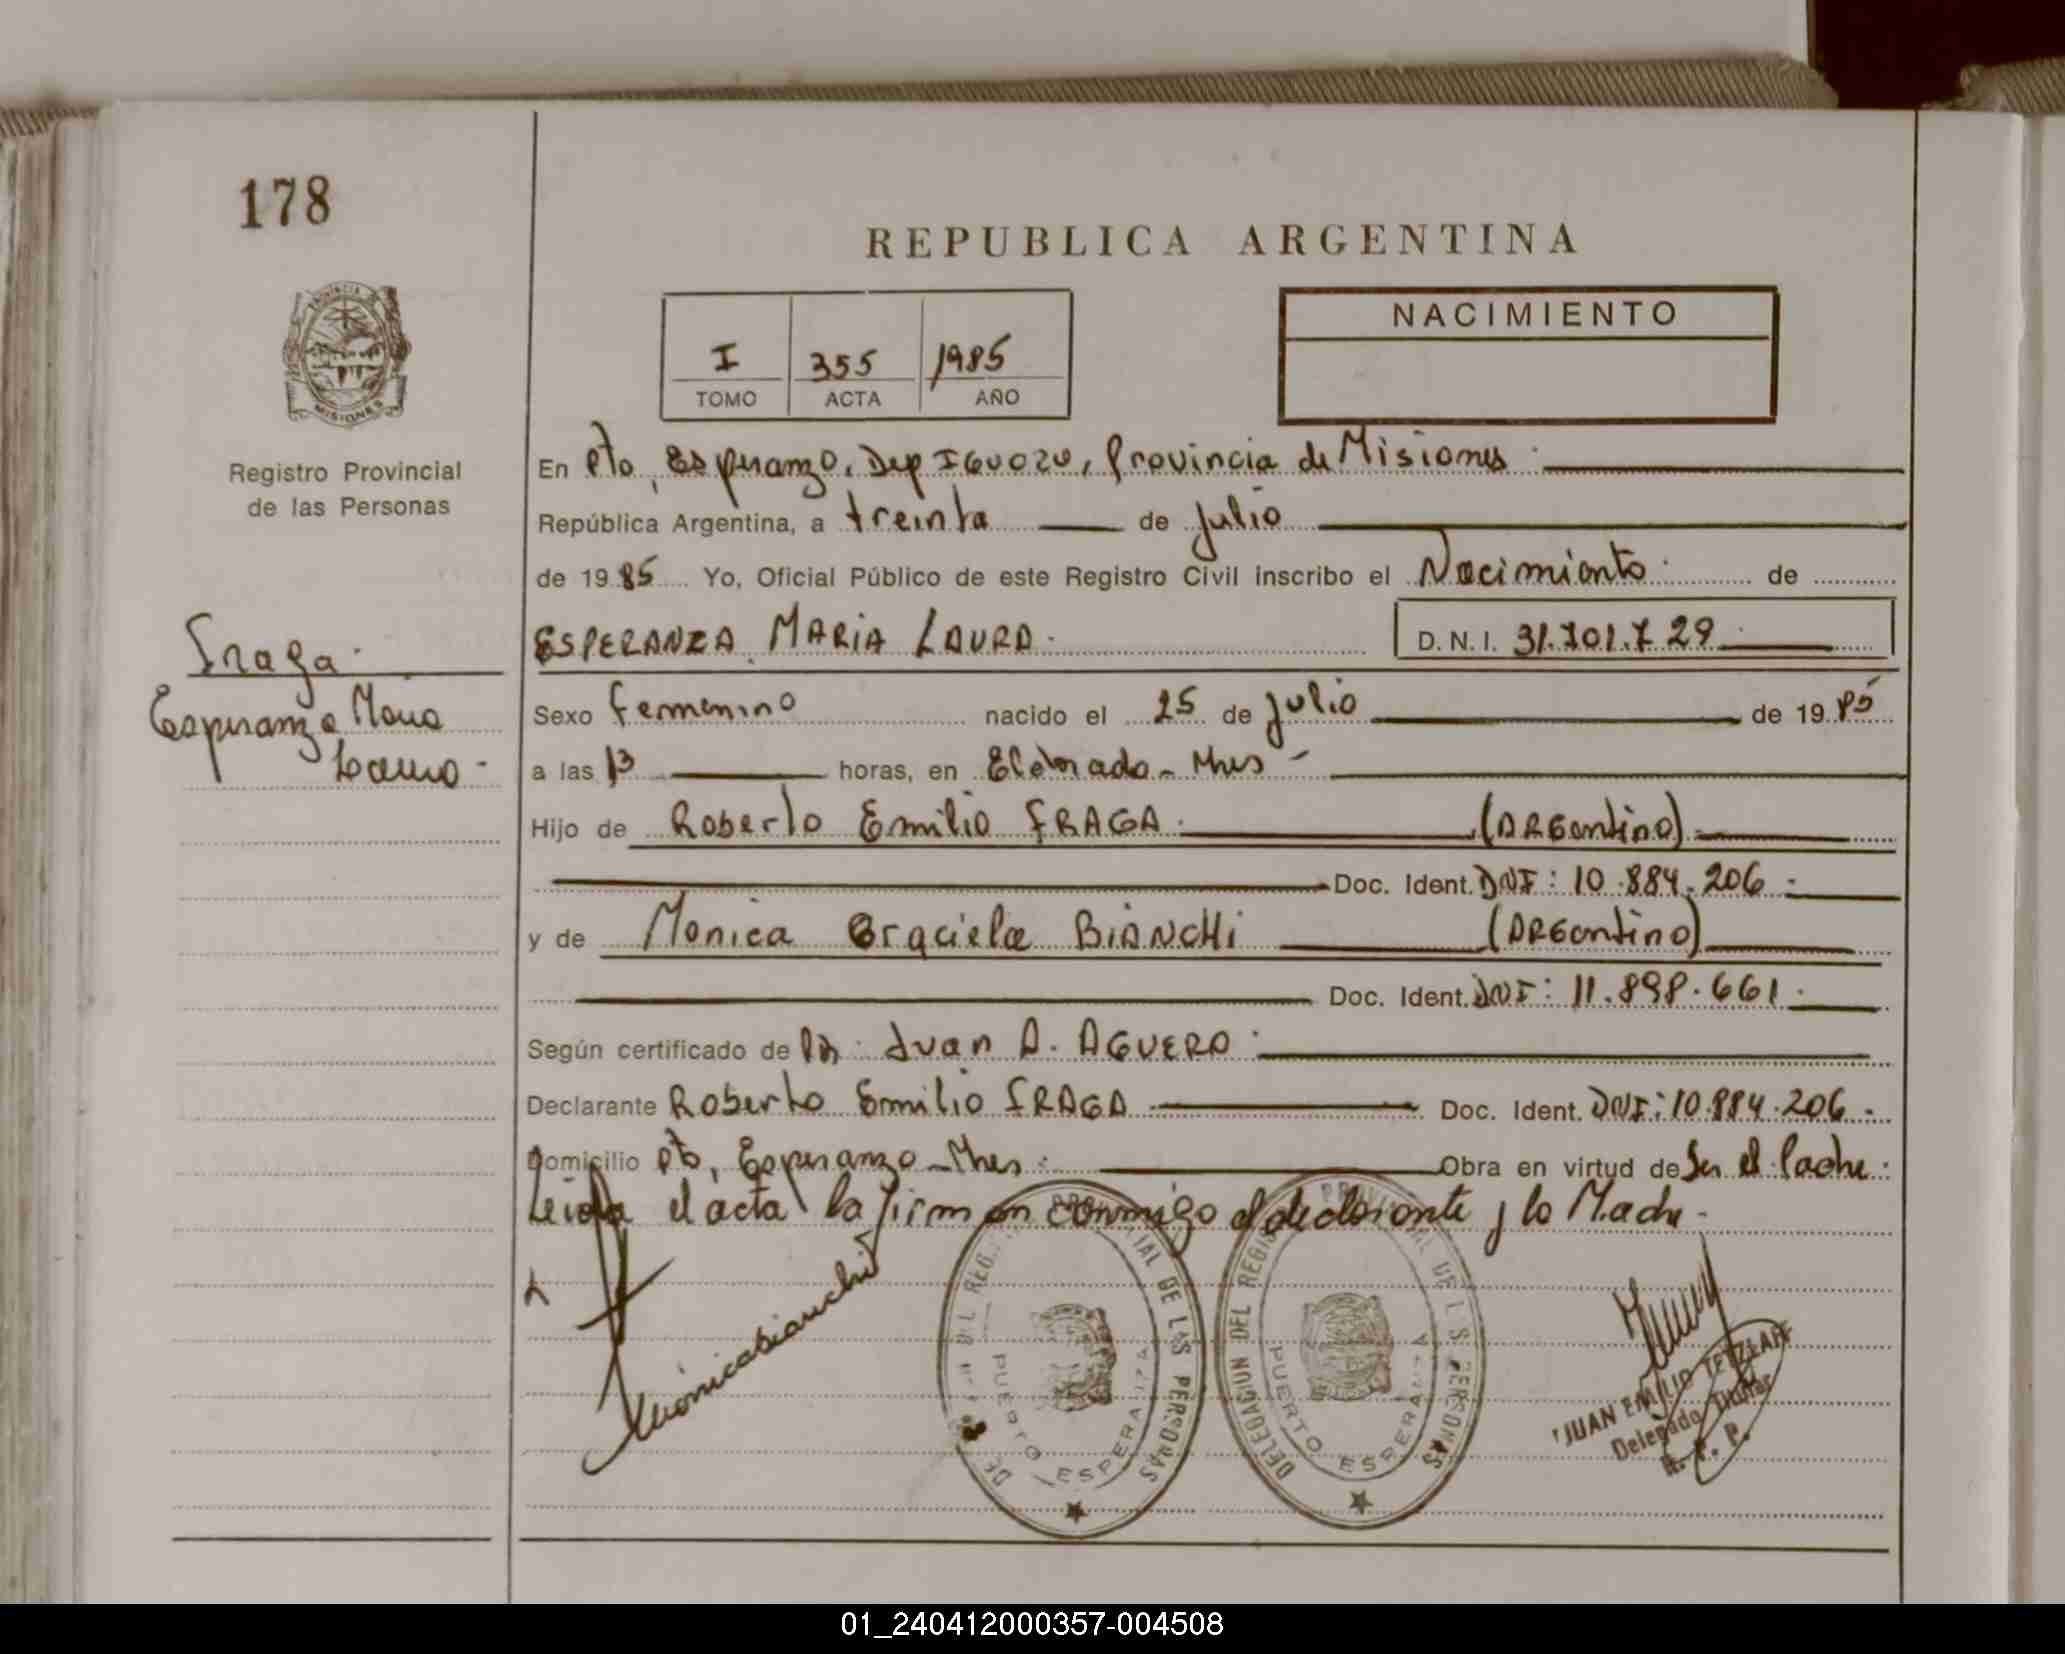 178
REPUBLICA ARGENTINA
PROVINCIA DE
MISIONES
Registro Provincial
de las Personas
I 355 1985
TOMO ACTA AÑO
NACIMIENTO
En Pto, Esperanza, Dep IGUAZU, Provincia de Misiones
República Argentina, a treinta de julio
de 1985 Yo, Oficial Público de este Registro Civil inscribo el Nacimiento de
ESPERANZA MARIA LAURA D.N.I. 31.701.729
Fraga
Esperanza Maria
Laura
Sexo femenino nacido el 25 de julio de 1985
a las 13 horas, en Eldorado - Mnes
Hijo de Roberto Emilio FRAGA (ARGentino)
Doc. Ident. DNI: 10.884.206
y de Monica Graciela BIANCHI (ARGentino)
Doc. Ident. DNI: 11.898.661
Según certificado de Juan A. AGUERO
Declarante Roberto Emilio FRAGA Doc. Ident. DNI: 10.884.206
Domicilio Pto, Esperanza - Mnes Obra en virtud de Ser el Padre
Leida el acta la firman conmigo el declarante y la Madre
Mónica Bianchi
DELEGACION DEL REGISTRO PROVINCIAL DE LAS PERSONAS
PUERTO ESPERANZA
DELEGACION DEL REGISTRO PROVINCIAL DE LAS PERSONAS
PUERTO ESPERANZA
JUAN EMILIO TETZLAFF
Delegado Titular
R. P. P.
01_240412000357-004508